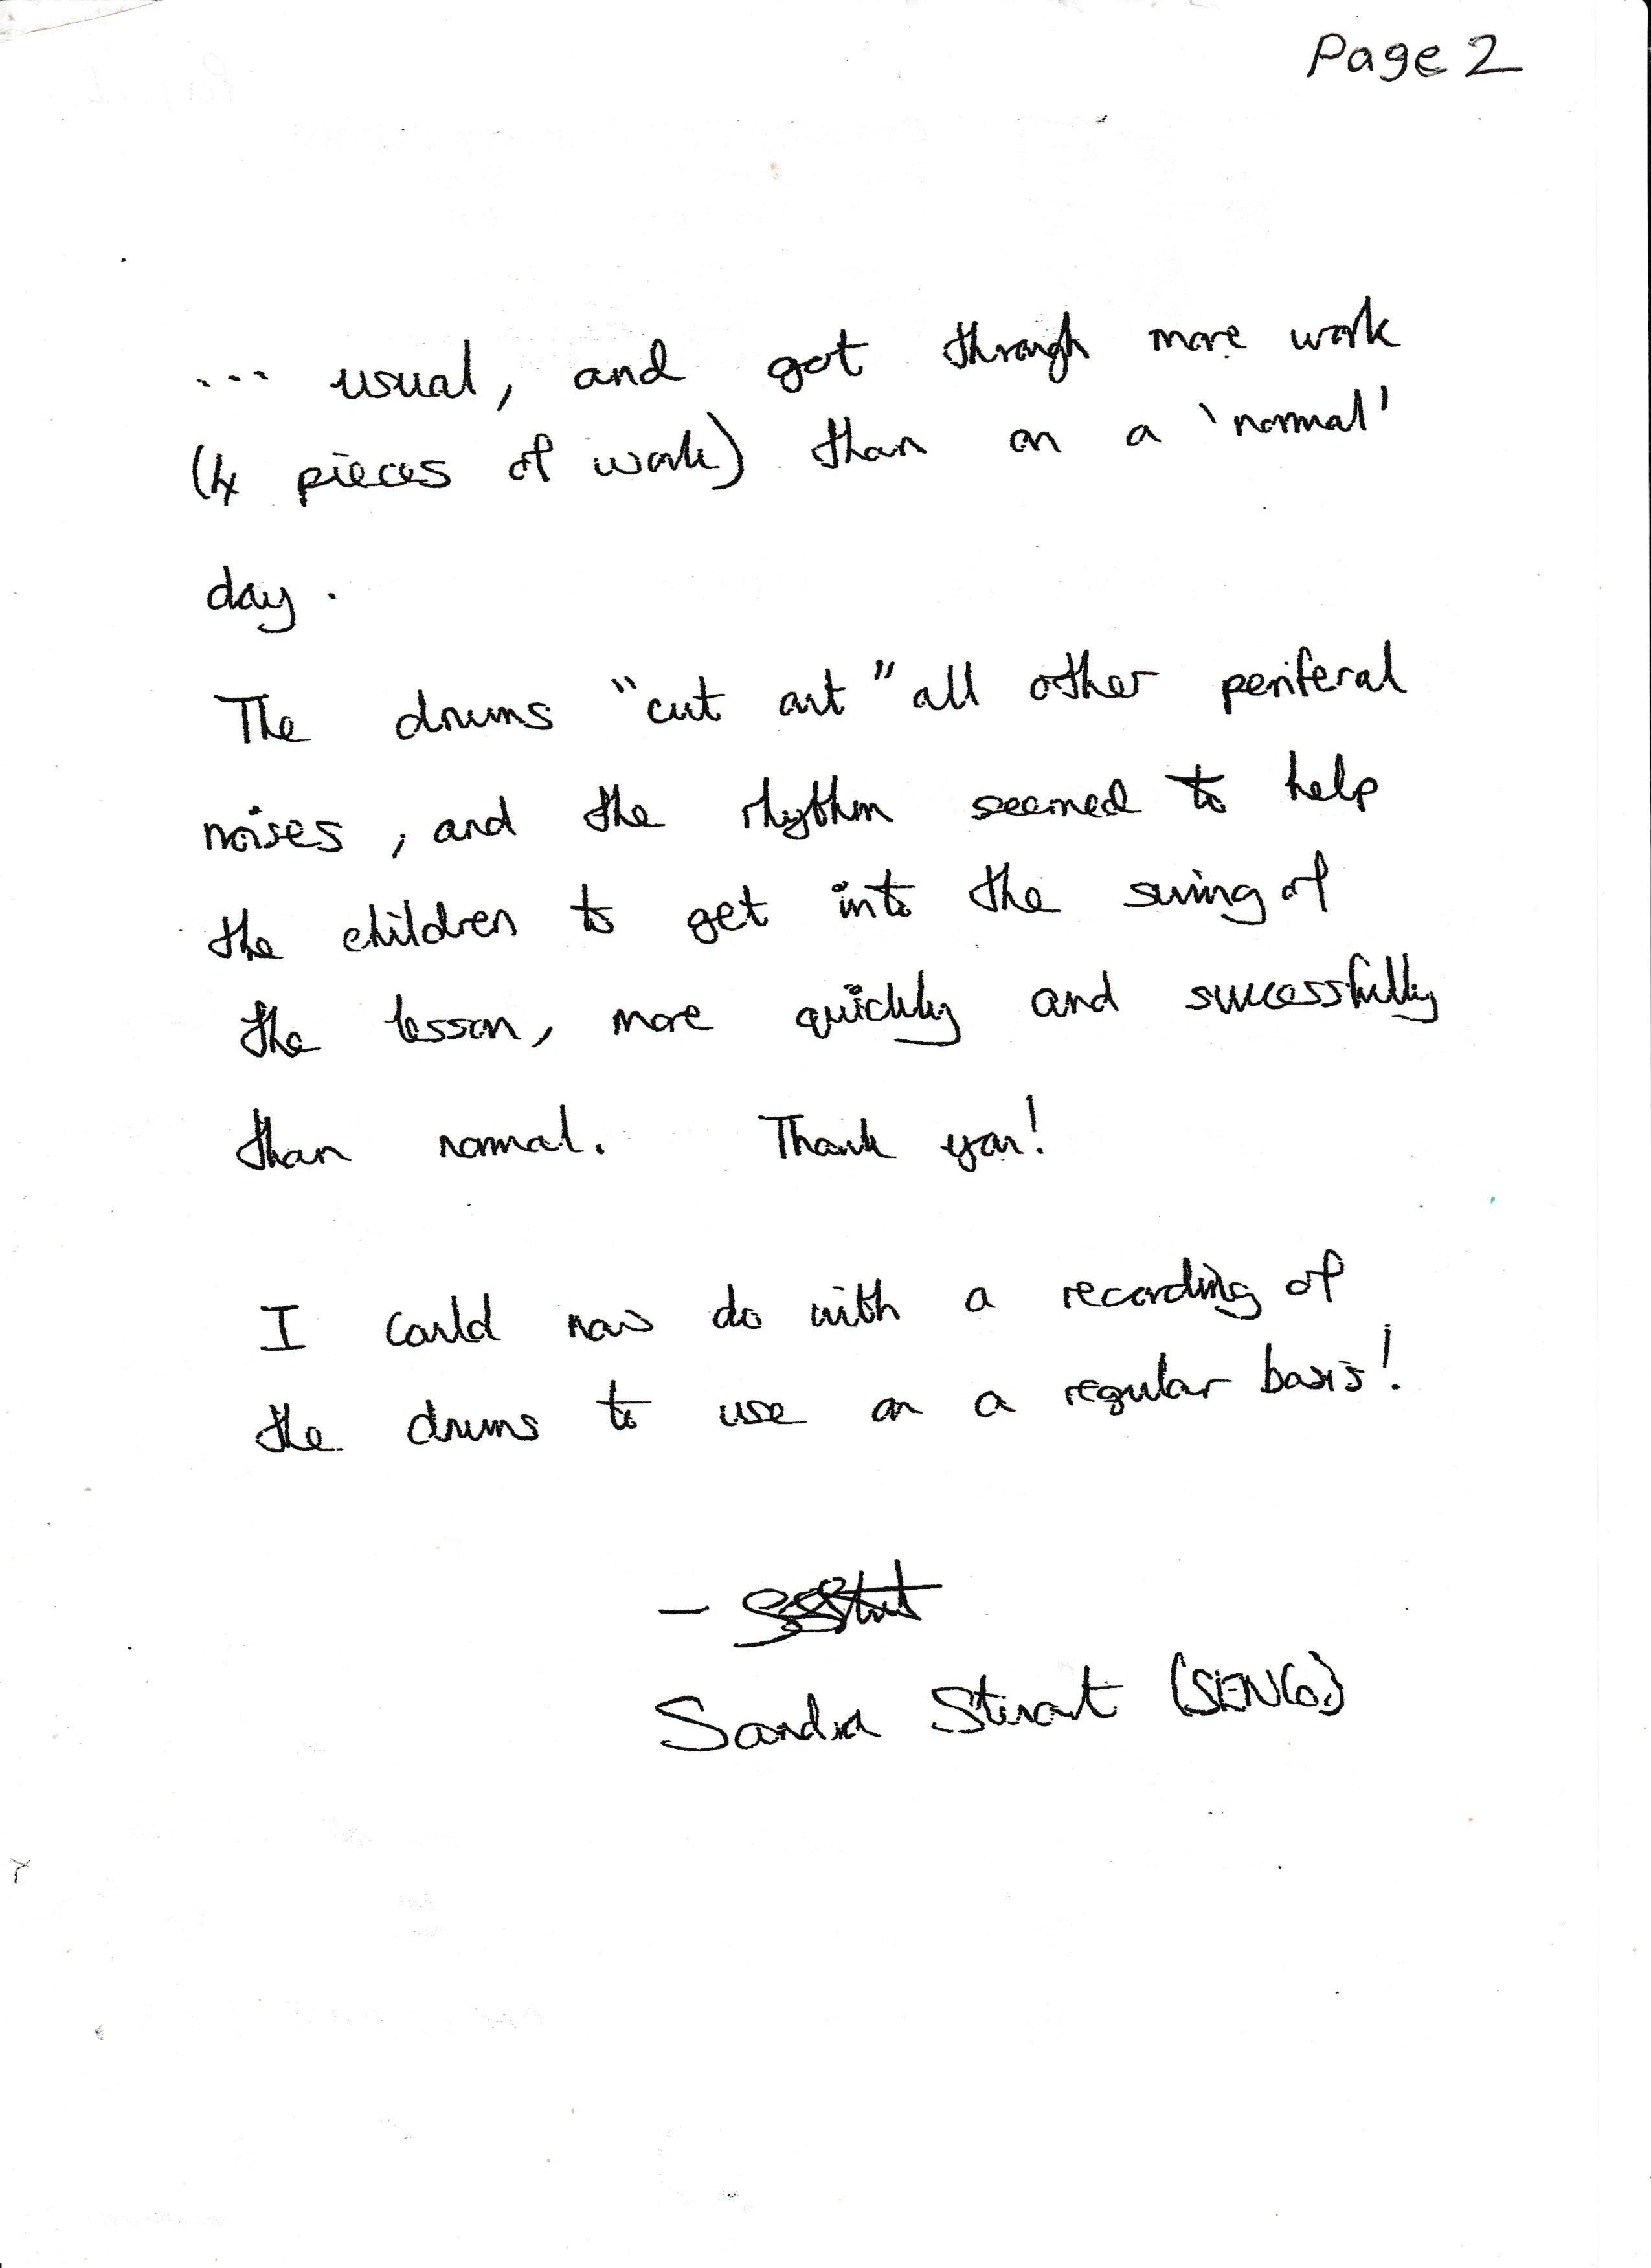 Page 2
... usual, and got through more work
(4 pieces of work) than on a 'normal'
day.
The drums "cut out" all other periferal
noises, and the rhythm seemed to help
the children to get into the swing of
the lesson, more quickly and successfully
than normal. Thank you!
I could now do with a recording of
the drums to use on a regular basis!
Sandra (SENCo.)